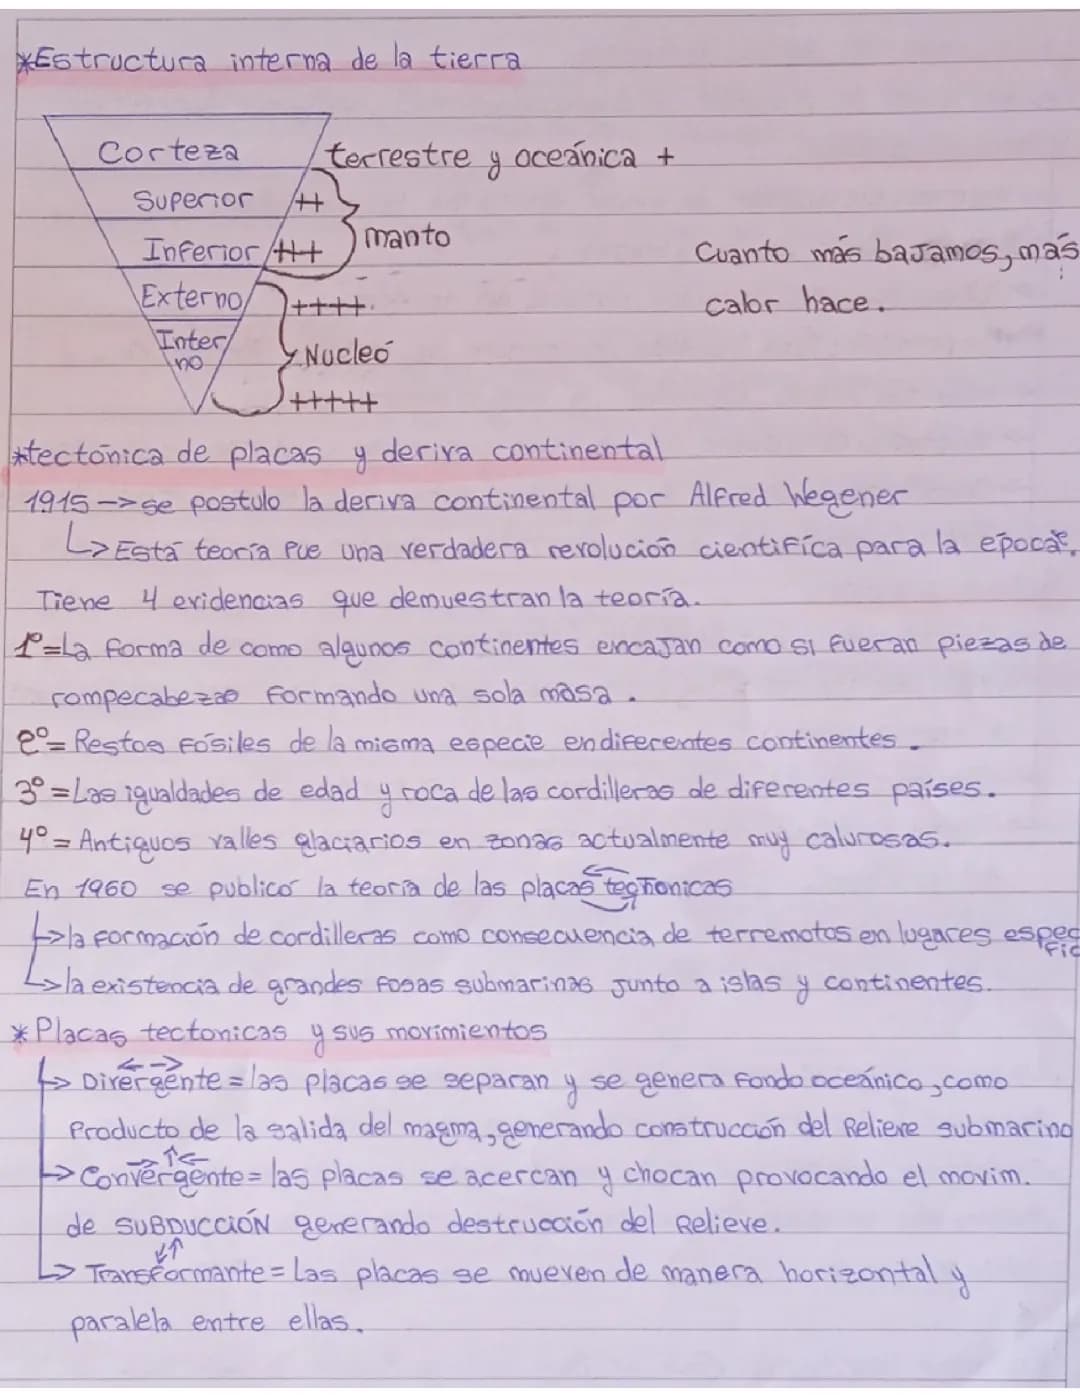 *Estructura interna de la tierra
Corteza terrestre y oceánica +
Superior ++
manto
Inferior +++
Cuanto más bajamos, más
calor hace.
Externo ++++.
Inter
no
Nucleó
+++++
*tectónica de placas y deriva continental
1915 -> se postulo la deriva continental por Alfred Wegener
↳ Está teoría fue una verdadera revolución científica para la época.
Tiene 4 evidencias que demuestran la teoría.
1º= La forma de como algunos continentes encajan como si fueran piezas de
rompecabezas formando una sola masa.
2º= Restos fósiles de la misma especie en diferentes continentes.
3º = Las igualdades de edad y roca de las cordilleras de diferentes países.
4º = Antiguos valles glaciarios en zonas actualmente muy calurosas.
En 1960 se publicó la teoría de las placas tectonicas
↳ la formación de cordilleras como consecuencia de terremotos en lugares especific
↳ la existencia de grandes fosas submarinas junto a islas y continentes.
* Placas tectonicas y sus movimientos
<- ->
↳ Divergente = las placas se separan y se genera fondo oceánico, como
Producto de la salida del magma, generando construcción del Relieve submarino
-> ↑ <-
↳ Convergente = las placas se acercan y chocan provocando el movim.
de SUBDUCCIÓN generando destrucción del Relieve.
↓↑
↳ Transformante = Las placas se mueven de manera horizontal y
paralela entre ellas.